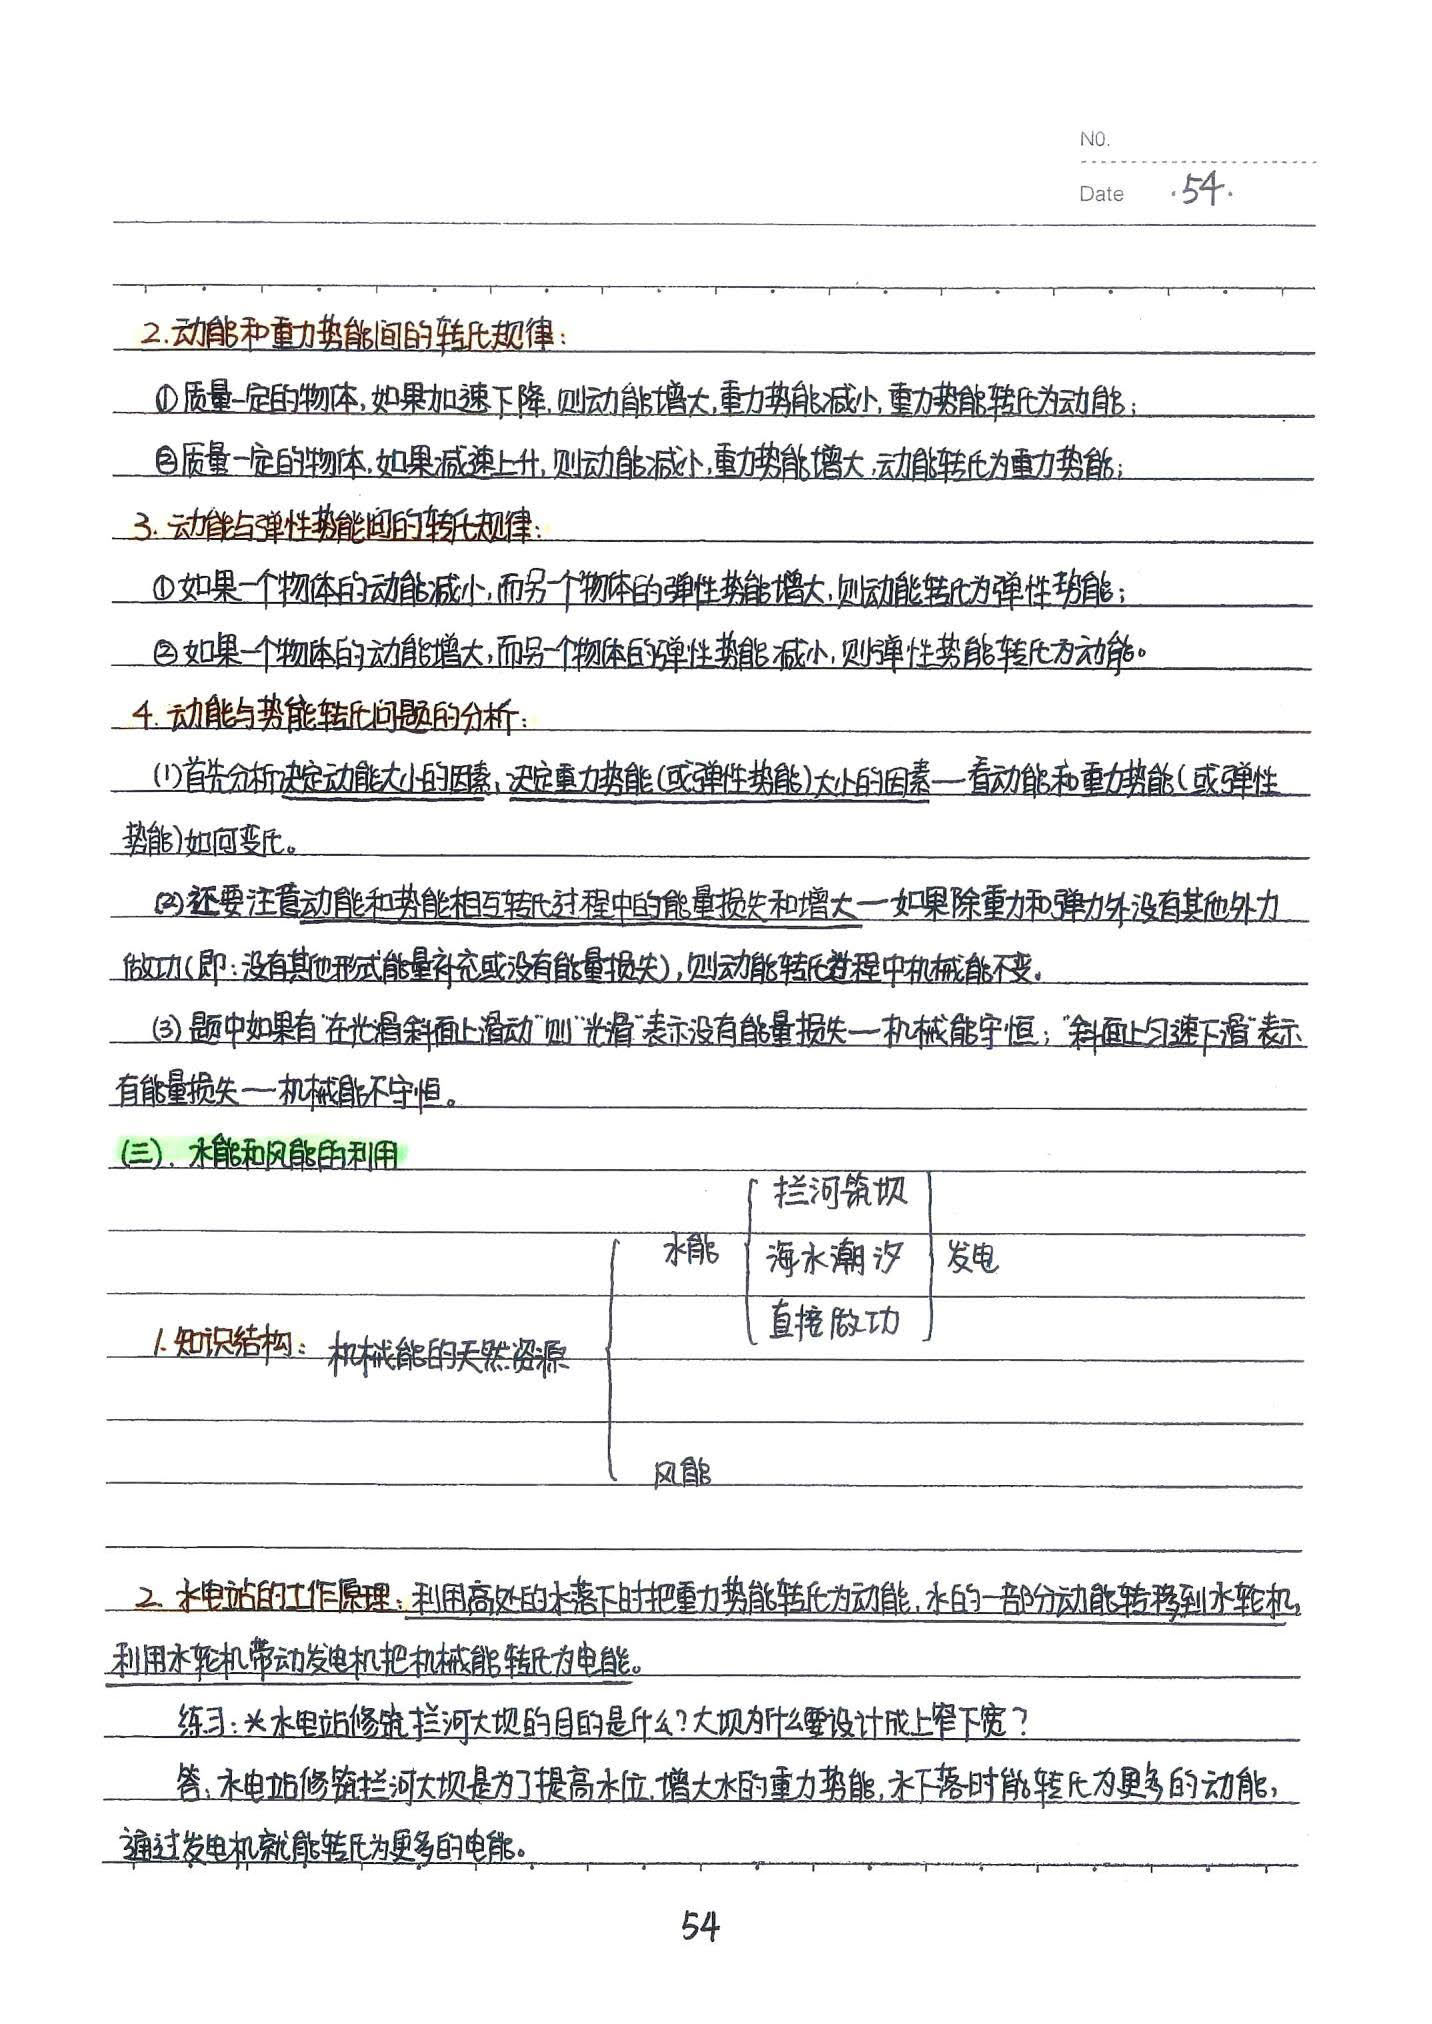 NO.
Date ·54·
2.动能和重力势能间的转化规律：
①质量一定的物体，如果加速下降，则动能增大，重力势能减小，重力势能转化为动能；
②质量一定的物体，如果减速上升，则动能减小，重力势能增大，动能转化为重力势能；
3.动能与弹性势能间的转化规律：
①如果一个物体的动能减小，而另一个物体的弹性势能增大，则动能转化为弹性势能；
②如果一个物体的动能增大，而另一个物体的弹性势能减小，则弹性势能转化为动能。
4.动能与势能转化问题的分析：
(1)首先分析决定动能大小的因素，决定重力势能(或弹性势能)大小的因素—看动能和重力势能(或弹性
势能)如何变化。
(2)还要注意动能和势能相互转化过程中的能量损失和增大—如果除重力和弹力外没有其他外力
做功(即：没有其他形式能量补充或没有能量损失)，则动能转化过程中机械能不变。
(3)题中如果有"在光滑斜面上滑动"则"光滑"表示没有能量损失—机械能守恒；"斜面上匀速下滑"表示
有能量损失—机械能不守恒。
(三).水能和风能的利用
拦河筑坝
水能 海水潮汐 发电
直接做功
1.知识结构：机械能的天然资源
风能
2.水电站的工作原理：利用高处的水落下时把重力势能转化为动能，水的一部分动能转移到水轮机，
利用水轮机带动发电机把机械能转化为电能。
练习：*水电站修筑拦河大坝的目的是什么？大坝为什么要设计成上窄下宽？
答：水电站修筑拦河大坝是为了提高水位，增大水的重力势能，水下落时能转化为更多的动能，
通过发电机就能转化为更多的电能。
54